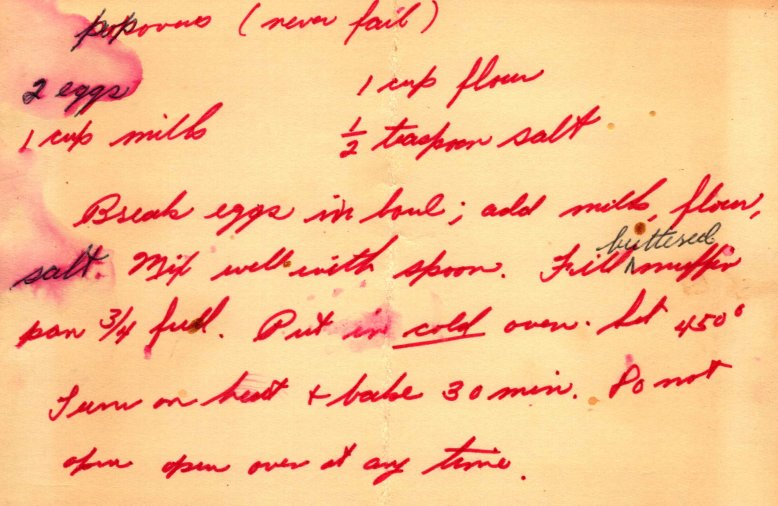 popovers (never fail)
2 eggs 1 cup flour
1 cup milk 1/2 teaspoon salt
Break eggs in bowl; add milk, flour,
salt. Mix well with spoon. Fill buttered muffin
pan 3/4 full. Put in cold oven. Set 450°
Turn on heat + bake 30 min. Do not
open open oven at any time.